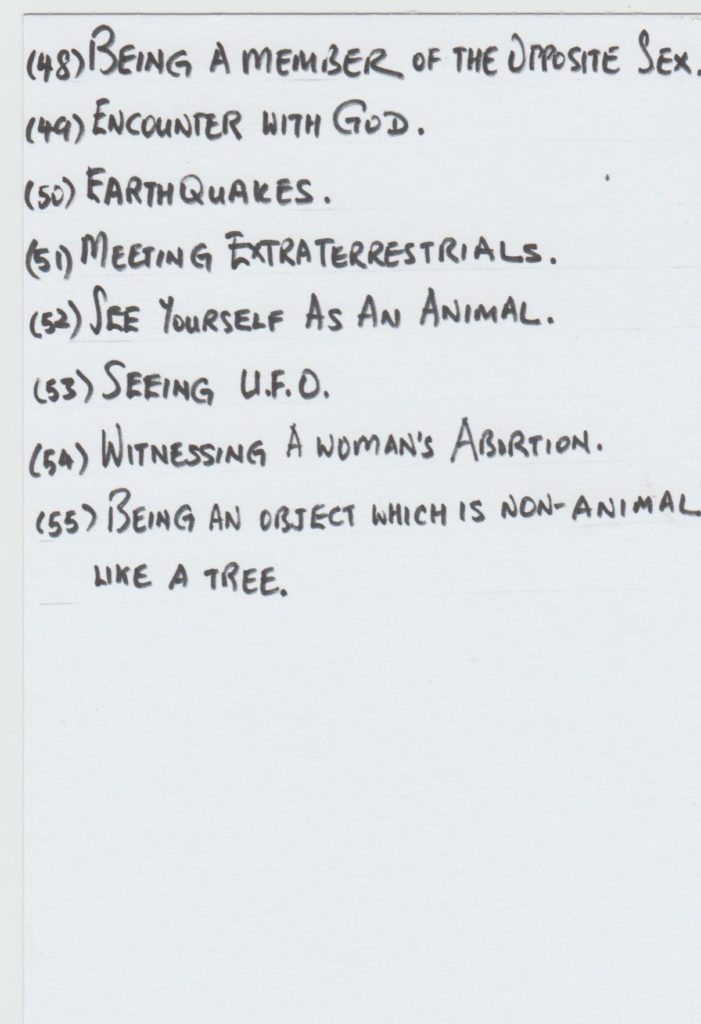 (48) BEING A MEMBER OF THE OPPOSITE SEX.
(49) ENCOUNTER WITH GOD.
(50) EARTHQUAKES.
(51) MEETING EXTRATERRESTRIALS.
(52) SEE YOURSELF AS AN ANIMAL.
(53) SEEING U.F.O.
(54) WITNESSING A WOMAN'S ABORTION.
(55) BEING AN OBJECT WHICH IS NON-ANIMAL
LIKE A TREE.